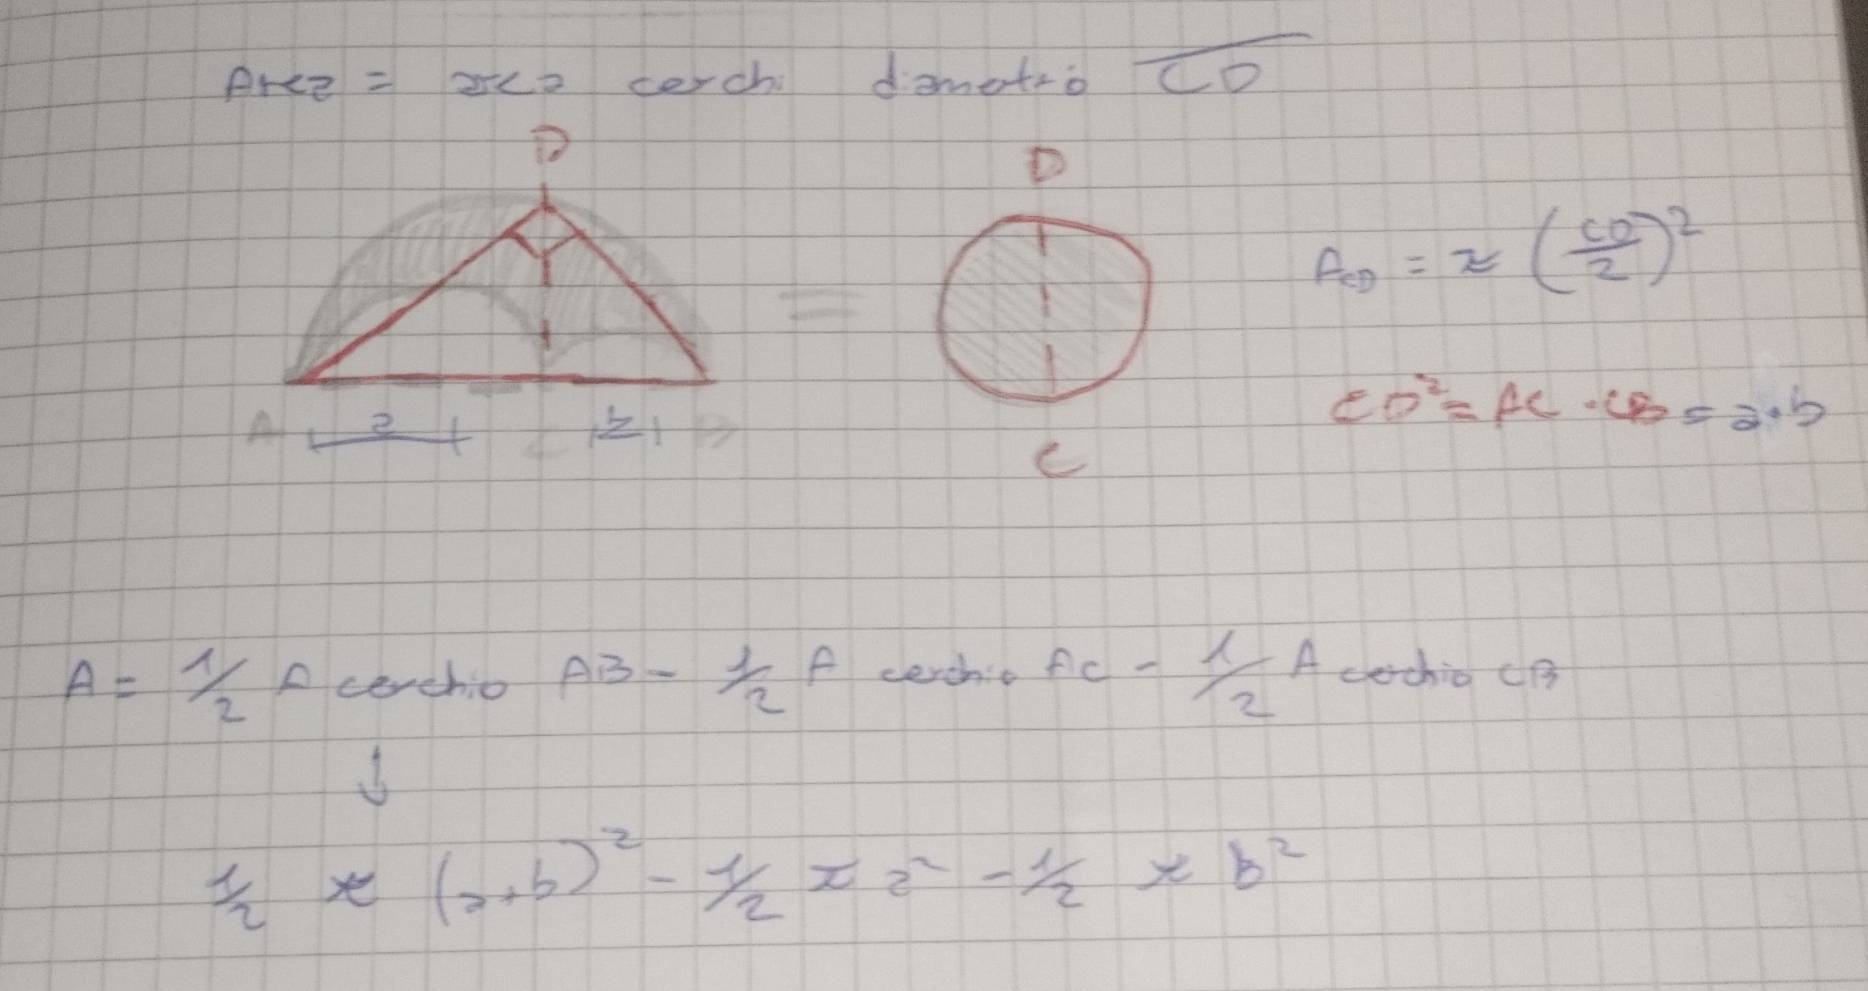 Area = area cerchi diametro CD
D
D
A_CD = π (CD/2)²
CD² = AC · CB = a·b
A a C b B
C
A = 1/2 A cerchio AB - 1/2 A cerchio AC - 1/2 A cerchio CB
↓
1/2 π (a+b)² - 1/2 π a² - 1/2 π b²